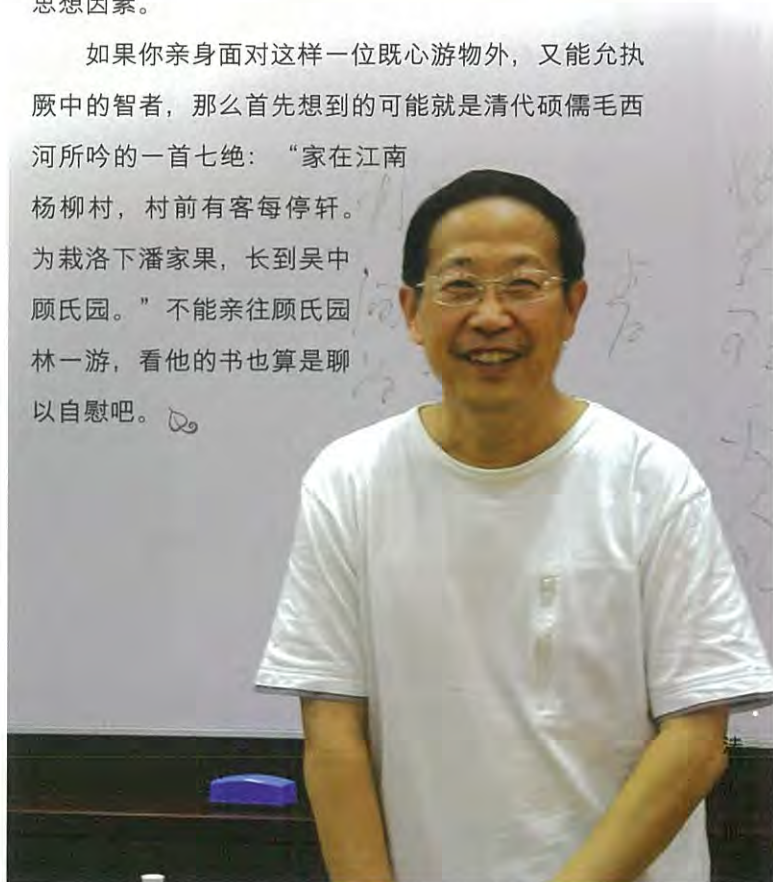 思想因素。
如果你亲身面对这样一位既心游物外，又能允执
厥中的智者，那么首先想到的可能就是清代硕儒毛西
河所吟的一首七绝：“家在江南
杨柳村，村前有客每停轩。
为栽洛下潘家果，长到吴中
顾氏园。”不能亲往顾氏园
林一游，看他的书也算是聊
以自慰吧。
法